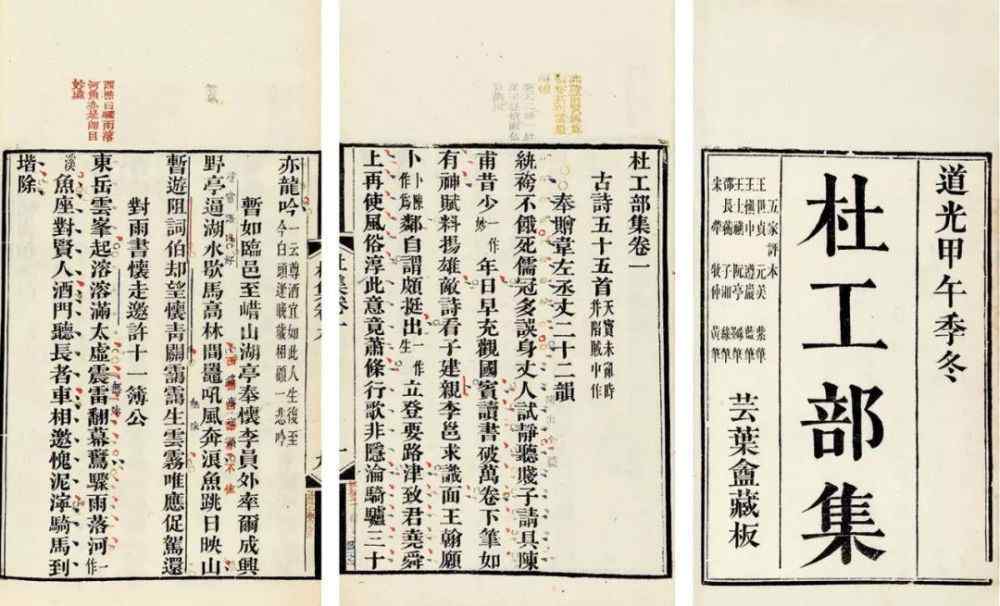 道光甲午季冬
五家評本
王世貞 元美 紫筆
王慎中 遵巖 藍筆
王士禛 阮亭
邵長蘅 子湘 綠筆
宋犖 牧仲 黃筆
杜工部集
芸葉盦藏板
杜工部集卷一
古詩五十五首 天寶未亂時并陷賊中作
奉贈韋左丞丈二十二韻
紈袴不餓死儒冠多誤身丈人試靜聽賤子請具陳
甫昔少一作妙年日早充觀國賓讀書破萬卷下筆如
有神賦料揚雄敵詩看子建親李邕求識面王翰願
卜卜陳作為鄰自謂頗挺出一作生立登要路津致君堯舜
上再使風俗淳此意竟蕭條行歌非隱淪騎驢三十
亦龍吟一云尊酒宜如此人生復至今白頭逢晚歲相顧一悲吟
暫如臨邑至㟙山湖亭奉懷李員外率爾成興
野亭逼湖水歇馬高林間鼉吼風奔浪魚跳日映山
暫遊阻詞伯却望懷青關靄靄生雲霧唯應促駕還
對雨書懷走邀許十一簿公
東岳雲峯起溶溶滿太虛震雷翻幕鷰驟雨落河一作
溪魚座對賢人酒門聽長者車相邀愧泥濘騎馬到
堦除
西樵曰驟雨落
河魚亦是即目
妙處